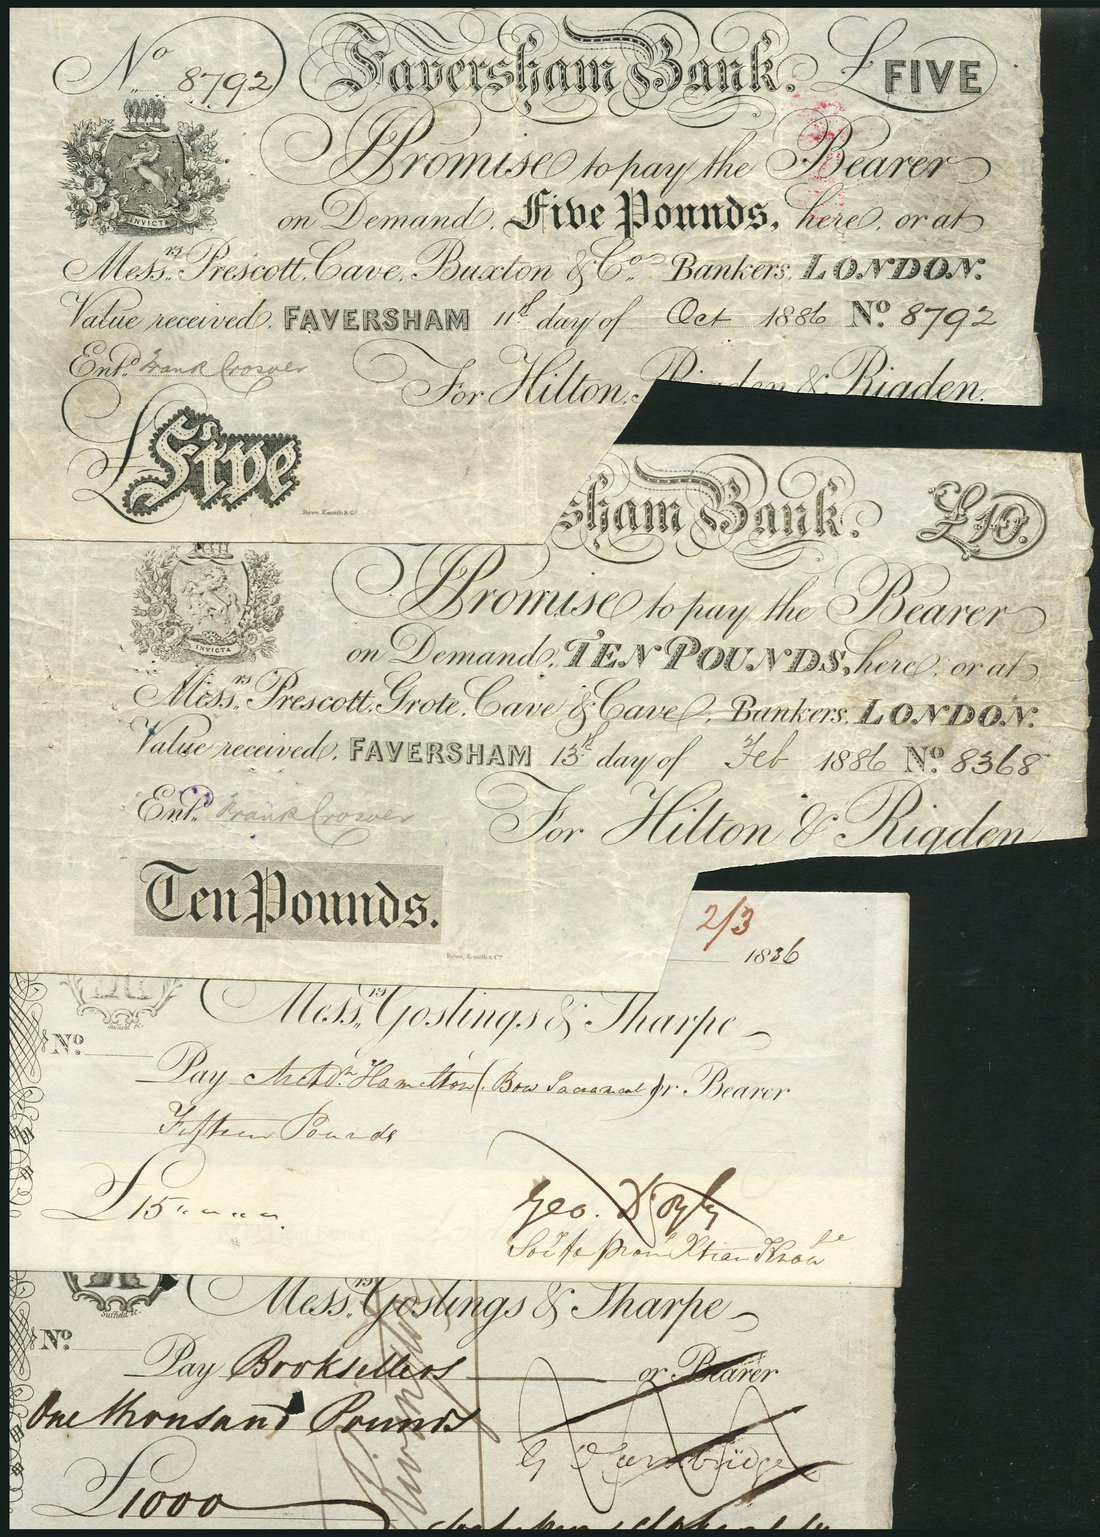 No 8792 Faversham Bank. £ FIVE
I Promise to pay the Bearer
INVICTA
on Demand, Five Pounds, here, or at
Messrs. Prescott, Cave, Buxton & Co. Bankers, LONDON.
Value received, FAVERSHAM 11th day of Oct 1886 No. 8792
Entd. Frank Crosoer
For Hilton, Rigden & Rigden.
£ Five
Rowe, Kentish & Co.
sham Bank. £10.
I Promise to pay the Bearer
INVICTA
on Demand, TEN POUNDS, here, or at
Messrs. Prescott, Grote, Cave & Cave, Bankers, LONDON.
Value received, FAVERSHAM 13th day of Feb 1886 No. 8368
Entd. Frank Crosoer
For Hilton & Rigden
Ten Pounds.
Rowe, Kentish & Co.
2/3
1836
Messrs. Goslings & Sharpe
No.
Pay Hamilton (Bow ) or Bearer
Fifteen Pounds
£15
Geo. D'Oyly
Messrs. Goslings & Sharpe
No.
Pay Booksellers or Bearer
One thousand Pounds
£1000